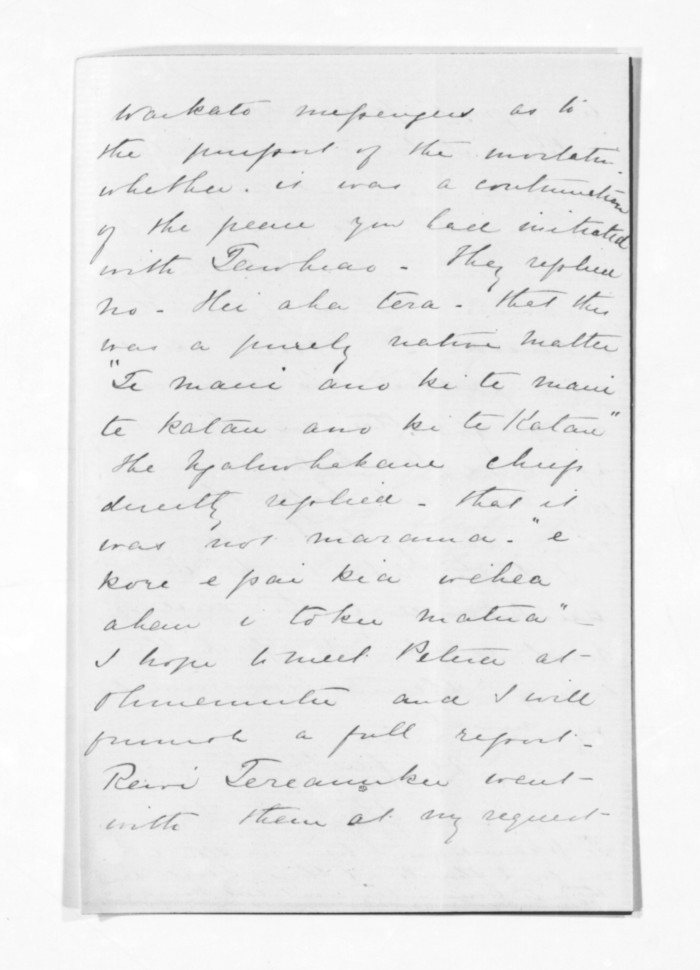 Waikato messengers as to
the purport of the invitation
whether it was a continuation
of the peace you had initiated
with Tawhiao - They replied
no - Hei aha tera - that this
was a purely native matter
"Te maui ano ki te maui
te katau ano ki te Katau"
the Ngatiwhakaue chiefs
directly replied - that it
was not marama - "e
kore e pai kia wehea
ahau i toku matua" -
I hope to meet Petera at -
Ohinemutu and I will
furnish a full report -
Rewi Tereanuku went -
with them at my request -